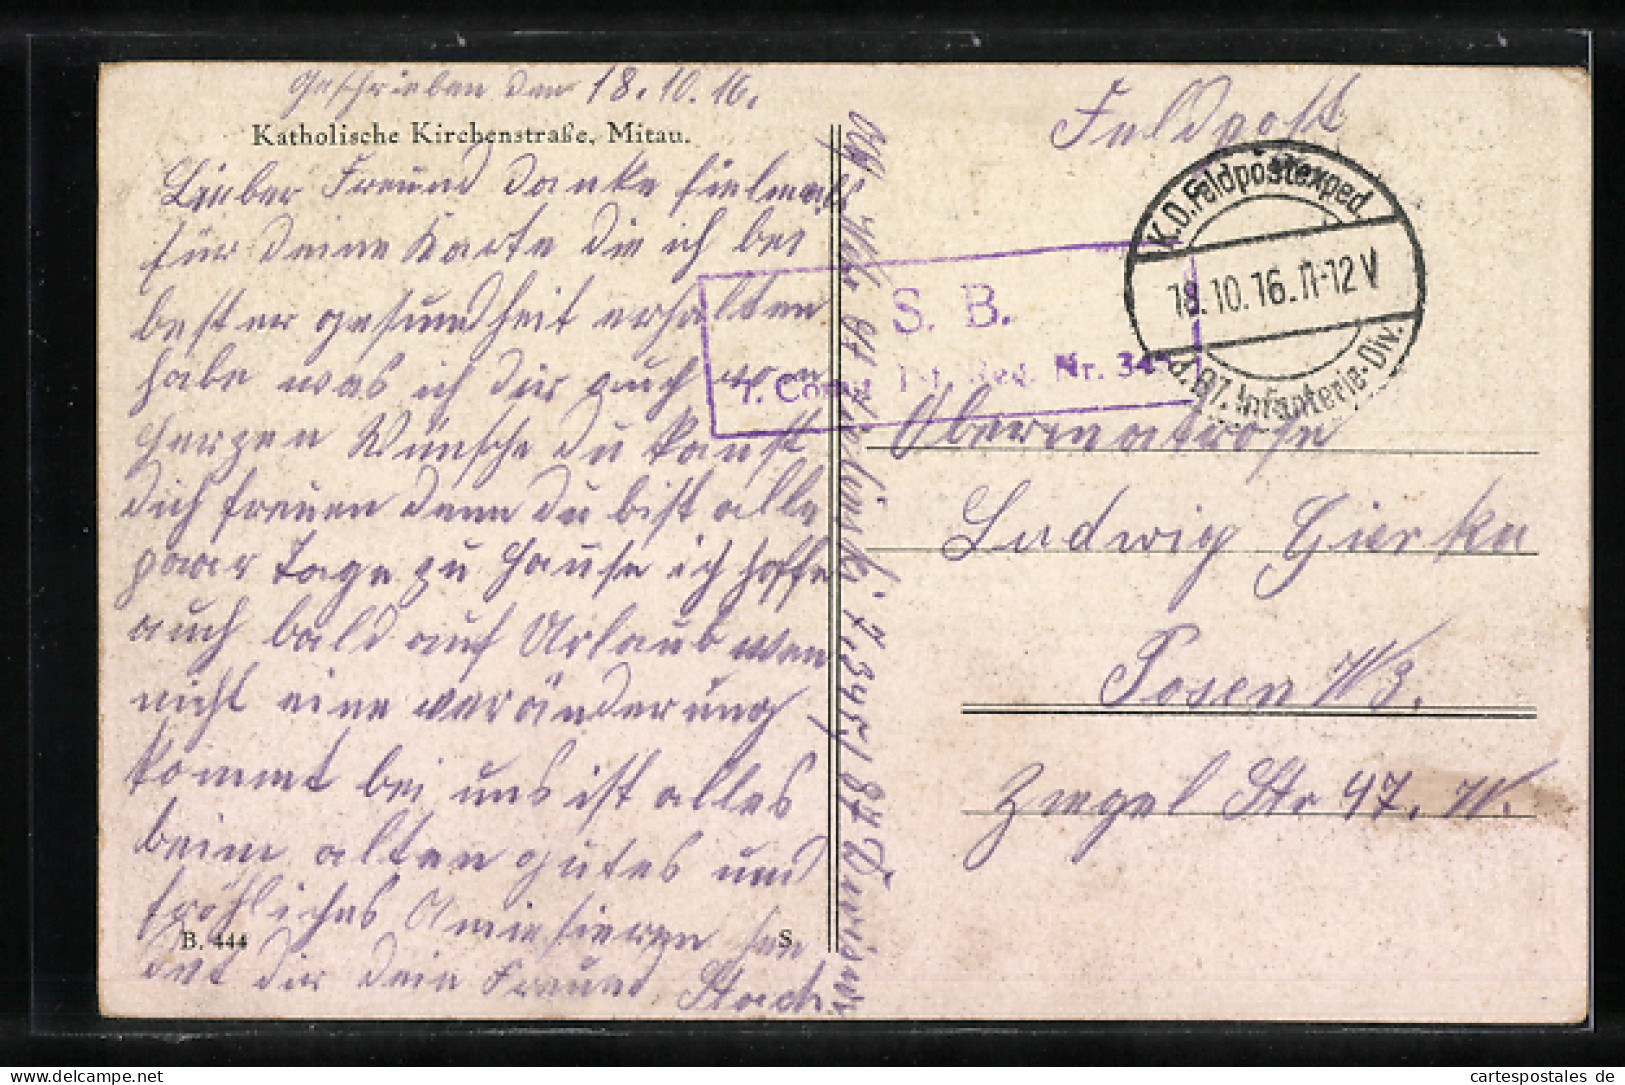 Geschrieben den 18.10.16.
Katholische Kirchenstraße, Mitau.
Lieber Freund danke fielmals
für deine Karte die ich bei
bester gesundheit erhalten
habe was ich dir auch von
Herzen Wünsche du kanst
dich freuen denn du bist alle
paar Tage zu Hause ich hoffe
auch bald auf Urlaub wen
nicht eine veränderung
kommt bei uns ist alles
beim alten gutes und
fröhliches Amiesieren sen
det dir dein Freund Stach
B. 444
S
7. 345, 87
Feldpost
K.D. Feldpostexped.
18.10.16.11-12 V
d. 87. Infanterie-Div.
S. B.
7. Comp. Inf. Reg. Nr. 345
Obermatrose
Ludwig Gierka
Posen W3.
Ziegel Str 47. W.
cartespostales de